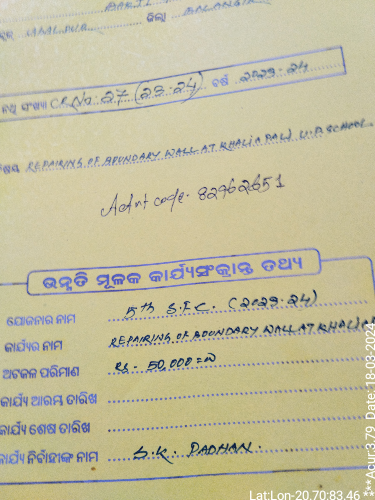 ଜିଲ୍ଲା BALANGIR
ନଥି ସଂଖ୍ୟା C.R. No: 27 (23-24) ବର୍ଷ 2023-24
REPAIRING OF BOUNDARY WALL AT KHALIAPALI U.P. SCHOOL
code- 82962651
ଉନ୍ନତି ମୂଳକ କାର୍ଯ୍ୟସଂକ୍ରାନ୍ତ ତଥ୍ୟ
ଯୋଜନାର ନାମ 5th S.F.C. (2023-24)
କାର୍ଯ୍ୟର ନାମ REPAIRING OF BOUNDARY WALL AT KHALIA
ଅଟକଳ ପରିମାଣ Rs - 50,000=00
କାର୍ଯ୍ୟ ଆରମ୍ଭ ତାରିଖ
କାର୍ଯ୍ୟ ଶେଷ ତାରିଖ
କାର୍ଯ୍ୟ ନିର୍ବାହୀଙ୍କ ନାମ S.K. PADHAN.
Lat:Lon-20.70:83.46
***Acur:3.79 Date:18-03-2024